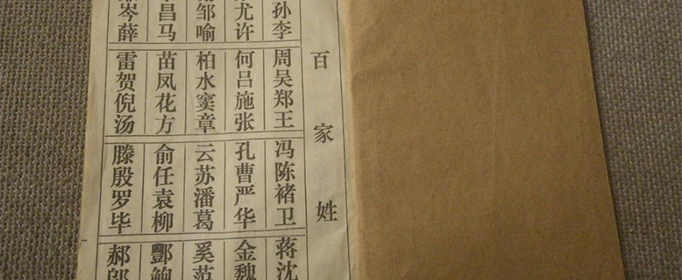 百家姓
孙李 周吴郑王 冯陈褚卫 蒋沈
尤许 何吕施张 孔曹严华 金魏
邹喻 柏水窦章 云苏潘葛 奚范
昌马 苗凤花方 俞任袁柳 酆鲍
岑薛 雷贺倪汤 滕殷罗毕 郝邬